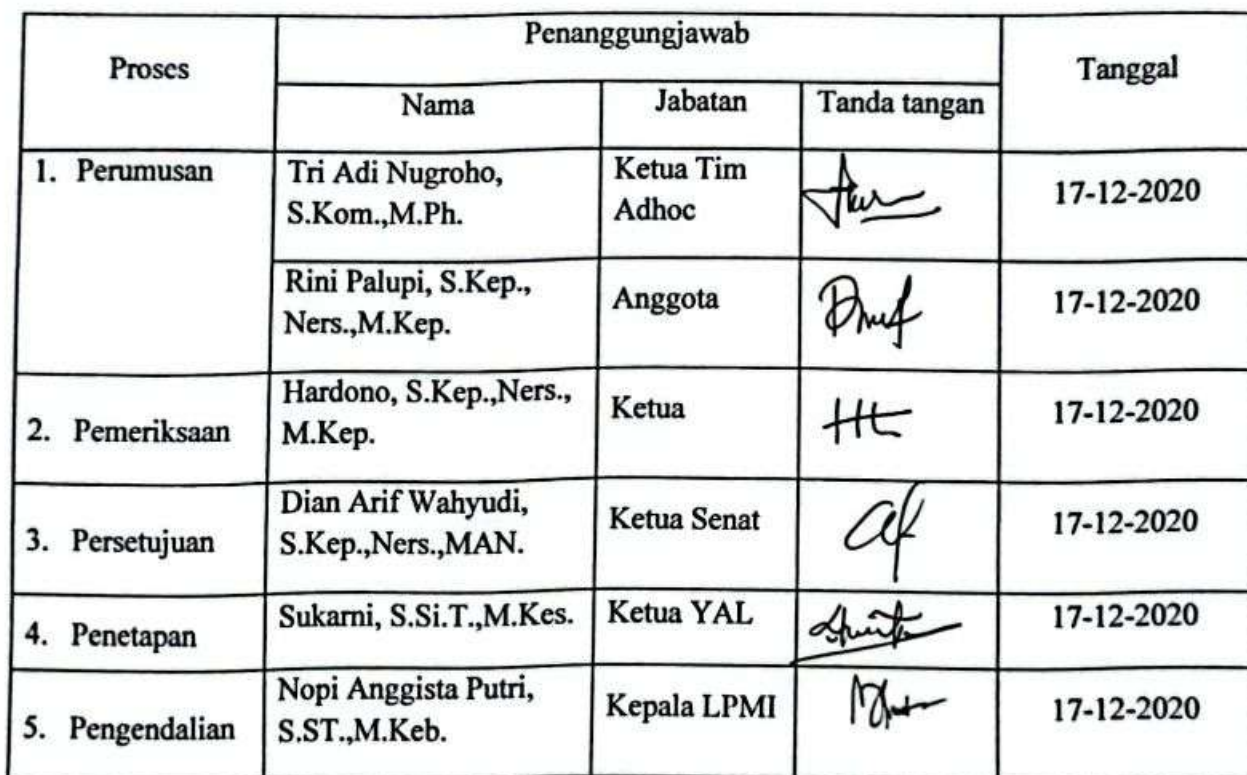 Proses
Penanggungjawab
Tanggal
Nama
Jabatan
Tanda tangan
1. Perumusan
Tri Adi Nugroho,
S.Kom.,M.Ph.
Ketua Tim
Adhoc
17-12-2020
Rini Palupi, S.Kep.,
Ners.,M.Kep.
Anggota
17-12-2020
2. Pemeriksaan
Hardono, S.Kep.,Ners.,
M.Kep.
Ketua
17-12-2020
3. Persetujuan
Dian Arif Wahyudi,
S.Kep.,Ners.,MAN.
Ketua Senat
17-12-2020
4. Penetapan
Sukarni, S.Si.T.,M.Kes.
Ketua YAL
17-12-2020
5. Pengendalian
Nopi Anggista Putri,
S.ST.,M.Keb.
Kepala LPMI
17-12-2020